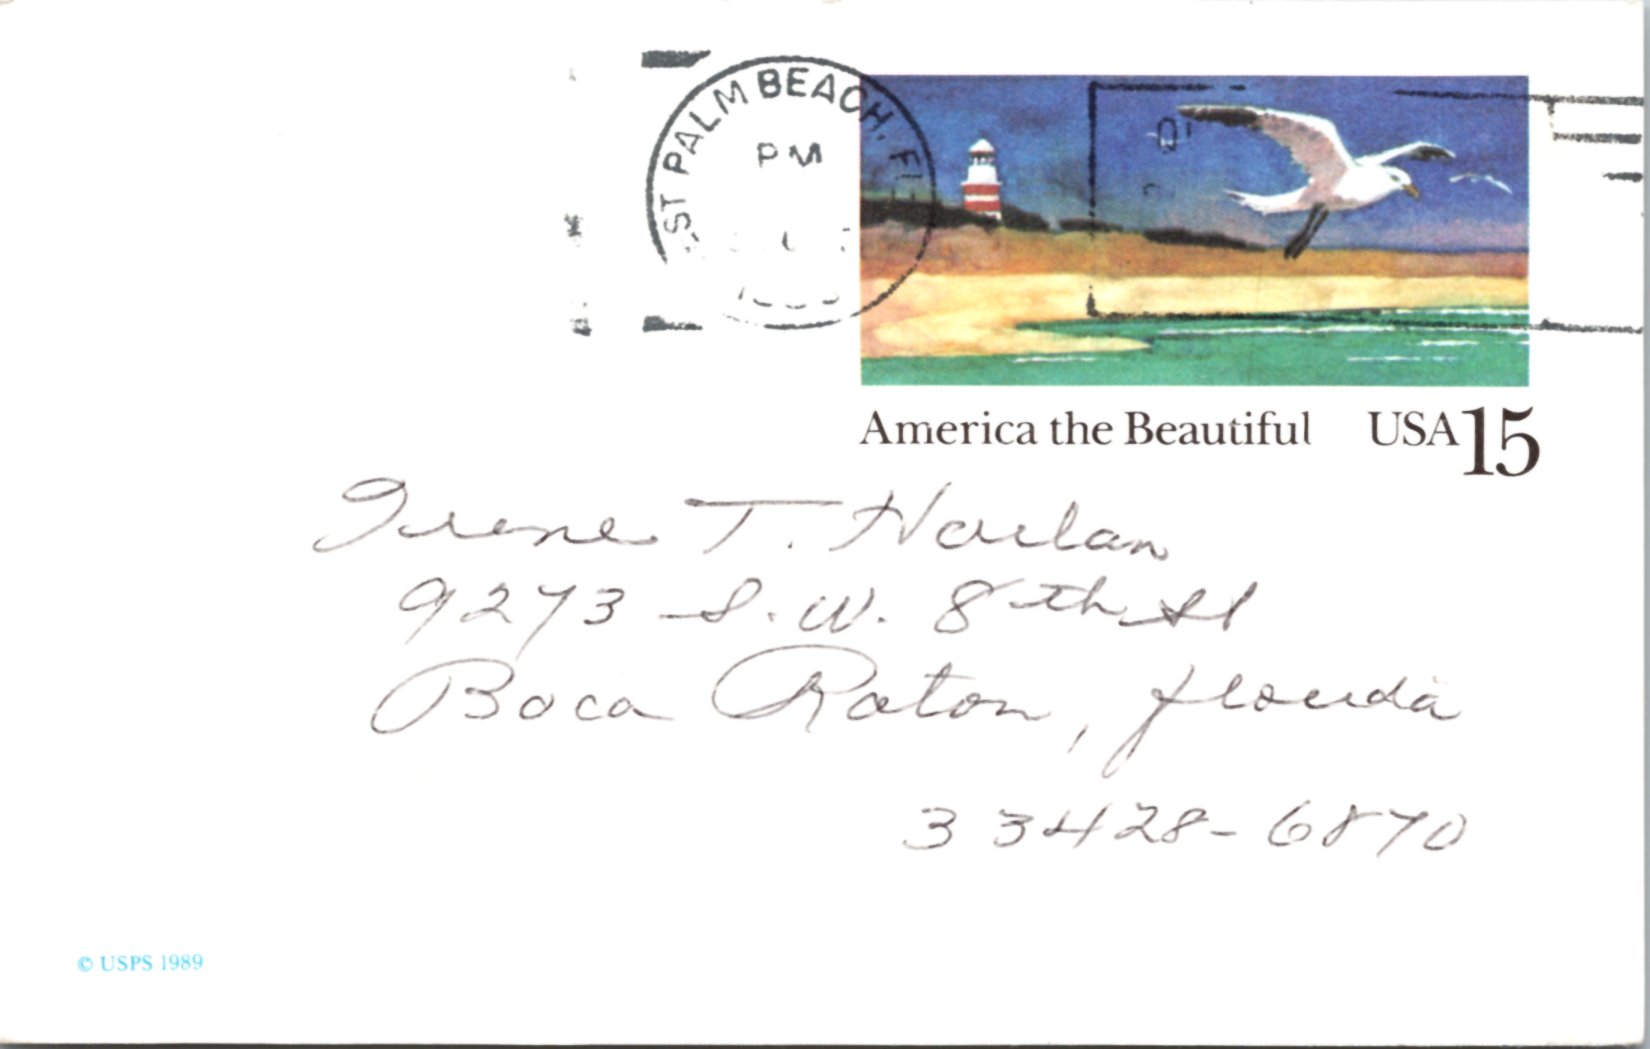 ST PALM BEACH, FL
PM
America the Beautiful USA 15
Irene T. Harlan
9273 S.W. 8th St
Boca Raton, Florida
33428-6870
© USPS 1989